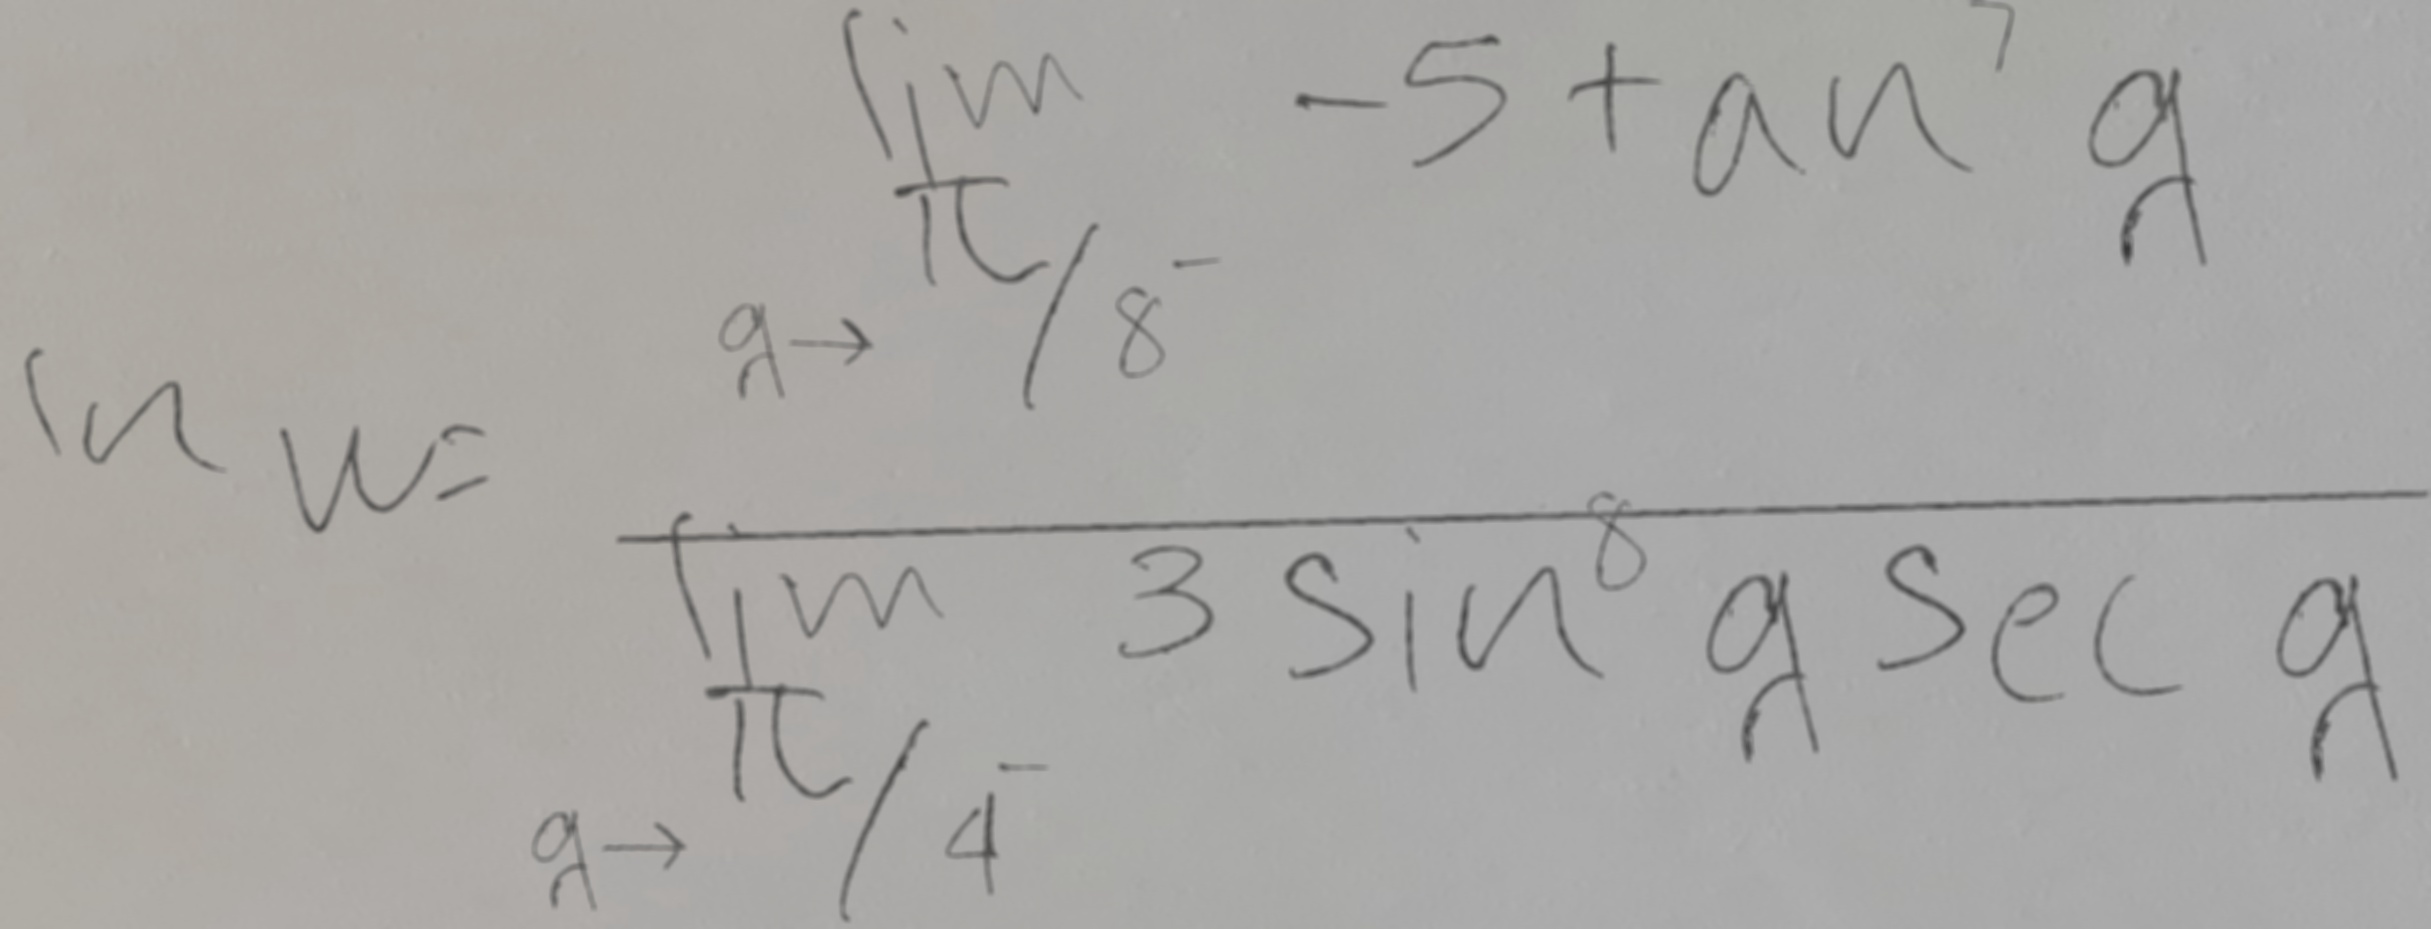 ln w = \frac{\lim_{g \to \pi/8^-} -5 \tan^7 g}{\lim_{g \to \pi/4^-} 3 \sin^8 g \sec g}